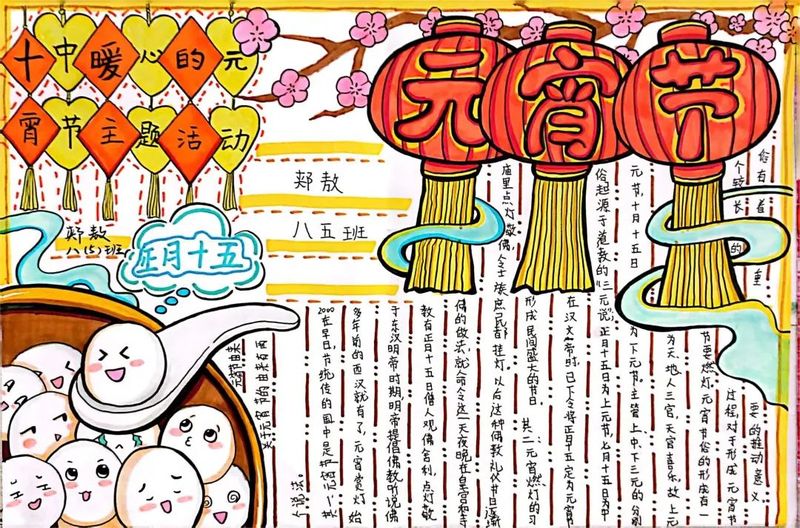 十中暖心的元
宵节主题活动
元宵节
郏敖
八五班
郏敖
八(5)班
正月十五
元宵节由来
关于元宵节的由来有两
个说法。
其一元宵节是中国的传统节日,早在2000
多年前的西汉就有了,元宵赏灯始
于东汉明帝时期,明帝提倡佛教,听说佛
教有正月十五日僧人观佛舍利,点灯敬
佛的做法,就命令这一天夜晚在皇宫和寺
庙里点灯敬佛,令士族庶民都挂灯。以后这种佛教礼仪节日逐渐
形成民间盛大的节日。其二元宵燃灯的习
在汉文帝时,已下令将正月十五定为元宵
俗起源于道教的“三元说”;正月十五日为上元节,七月十五日为中
元节,十月十五日为下元节。主管上中下三元的分别
为天、地、人三官,天官喜乐,故上元
节要燃灯。元宵节俗的形成有一
个较长的过程,对于形成元宵
俗有着重要的推动意义